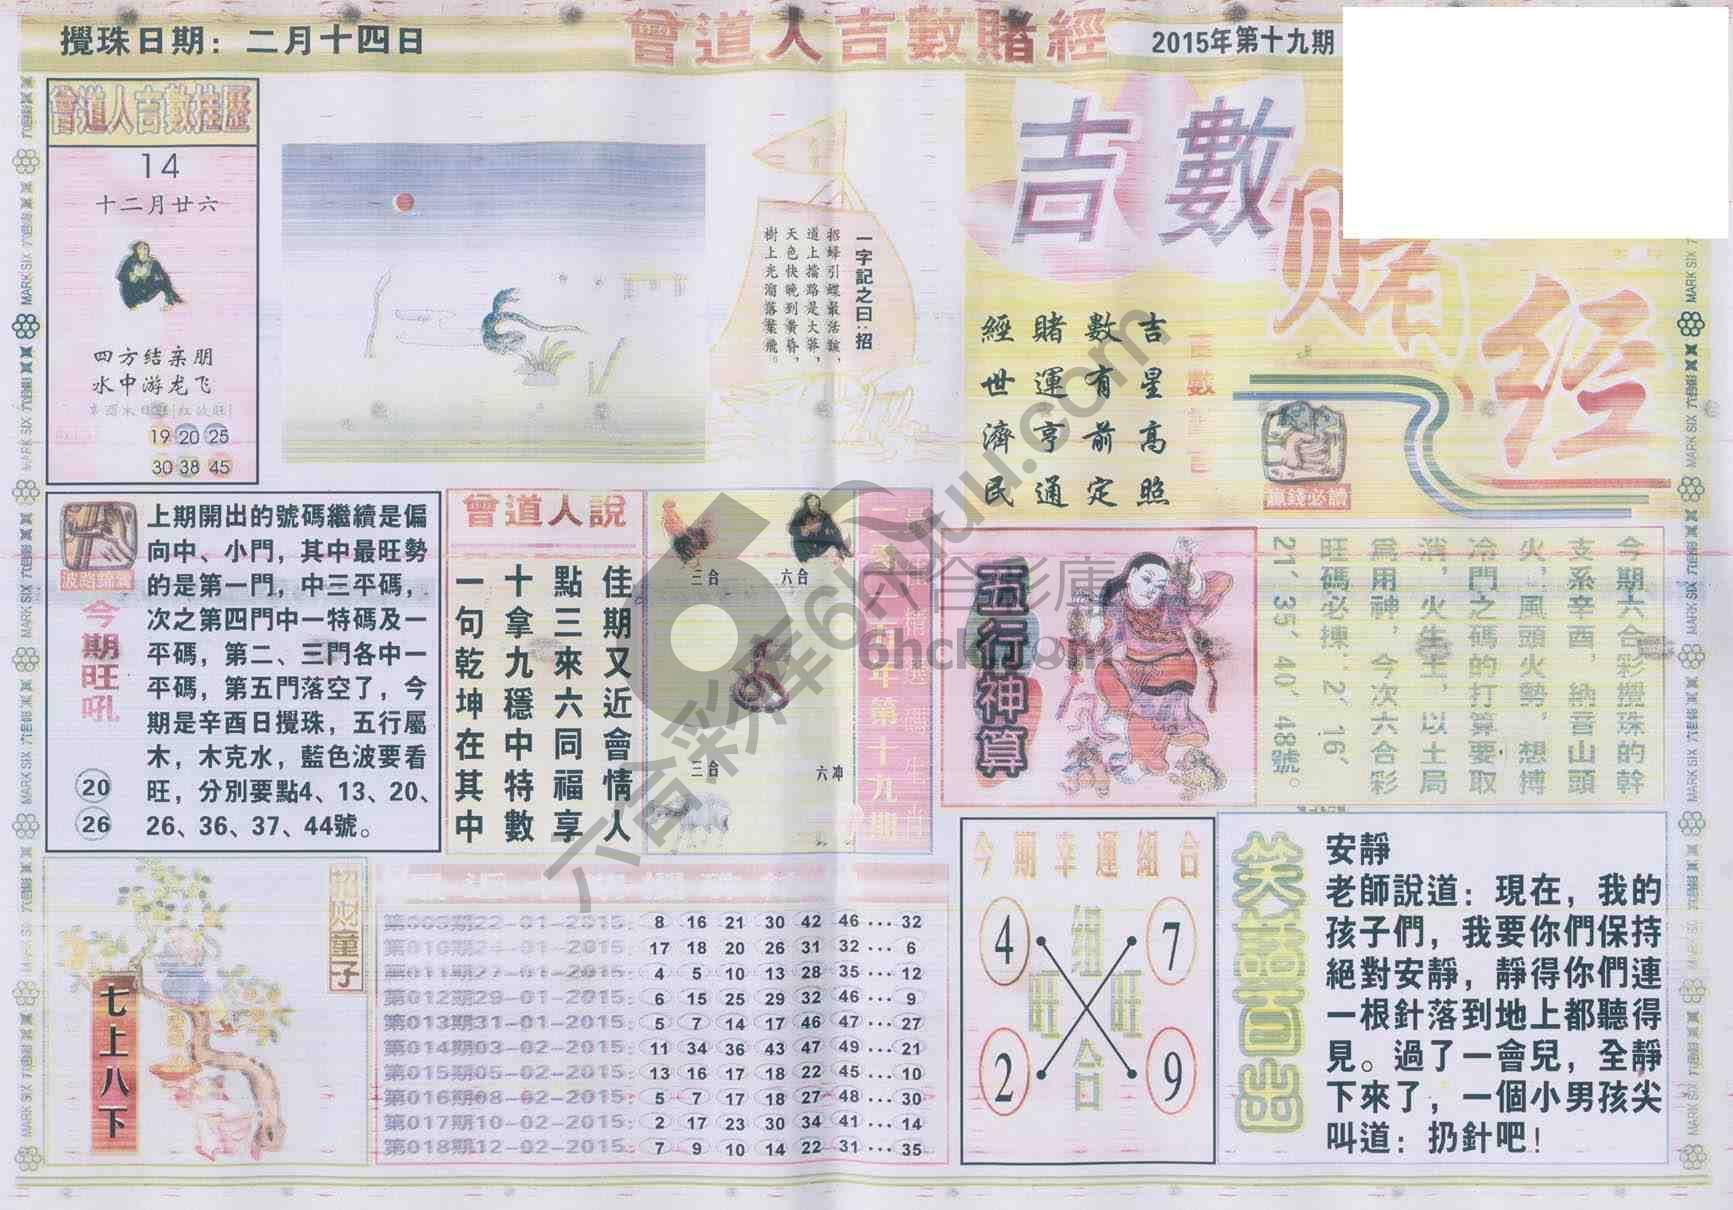 攪珠日期：二月十四日
曾道人吉數賭經
2015年第十九期
曾道人吉數挂歷
14
十二月廿六
四方结亲朋
水中游龙飞
19 20 25
30 38 45
一字記之曰:招
招蜂引蝶最活該，
道上擋路是大蟒，
天色快晚到黃昏，
樹上光溜落葉飛。
吉數
赌
经
吉星高照
數有前定
賭運亨通
經世濟民
贏錢必讀
波路籂瀛
今期旺吼
20
26
上期開出的號碼繼續是偏
向中、小門，其中最旺勢
的是第一門，中三平碼，
次之第四門中一特碼及一
平碼，第二、三門各中一
平碼，第五門落空了，今
期是辛酉日攪珠，五行屬
木，木克水，藍色波要看
旺，分別要點4、13、20、
26、36、37、44號。
曾道人說
佳期又近會情人
點三來六同福享
十拿九穩中特數
一句乾坤在其中
三合
六合
三合
六冲
五行神算
今期六合彩攪珠的幹
支系辛酉，納音山頭
火，風頭火勢，想搏
冷門之碼的打算要取
消，火生土，以土局
為用神，今次六合彩
旺碼必揀：2、16、
21、35、40、48號。
招財童子
七上八下
第009期22-01-2015: 8 16 21 30 42 46...32
第010期24-01-2015: 17 18 20 26 31 32...6
第011期27-01-2015: 4 5 10 13 28 35...12
第012期29-01-2015: 6 15 25 29 32 46...9
第013期31-01-2015: 5 7 14 17 46 47...27
第014期03-02-2015: 11 34 36 43 47 49...21
第015期05-02-2015: 13 16 17 18 22 45...10
第016期08-02-2015: 5 7 17 18 27 48...30
第017期10-02-2015: 2 17 23 30 34 41...14
第018期12-02-2015: 7 9 10 14 22 31...35
今期幸運組合
4 組 7
旺 旺
2 合 9
笑話百出
安靜
老師說道：現在，我的
孩子們，我要你們保持
絕對安靜，靜得你們連
一根針落到地上都聽得
見。過了一會兒，全靜
下來了，一個小男孩尖
叫道：扔針吧！
六合彩库6htuku.com
六合彩庫
6hck.com